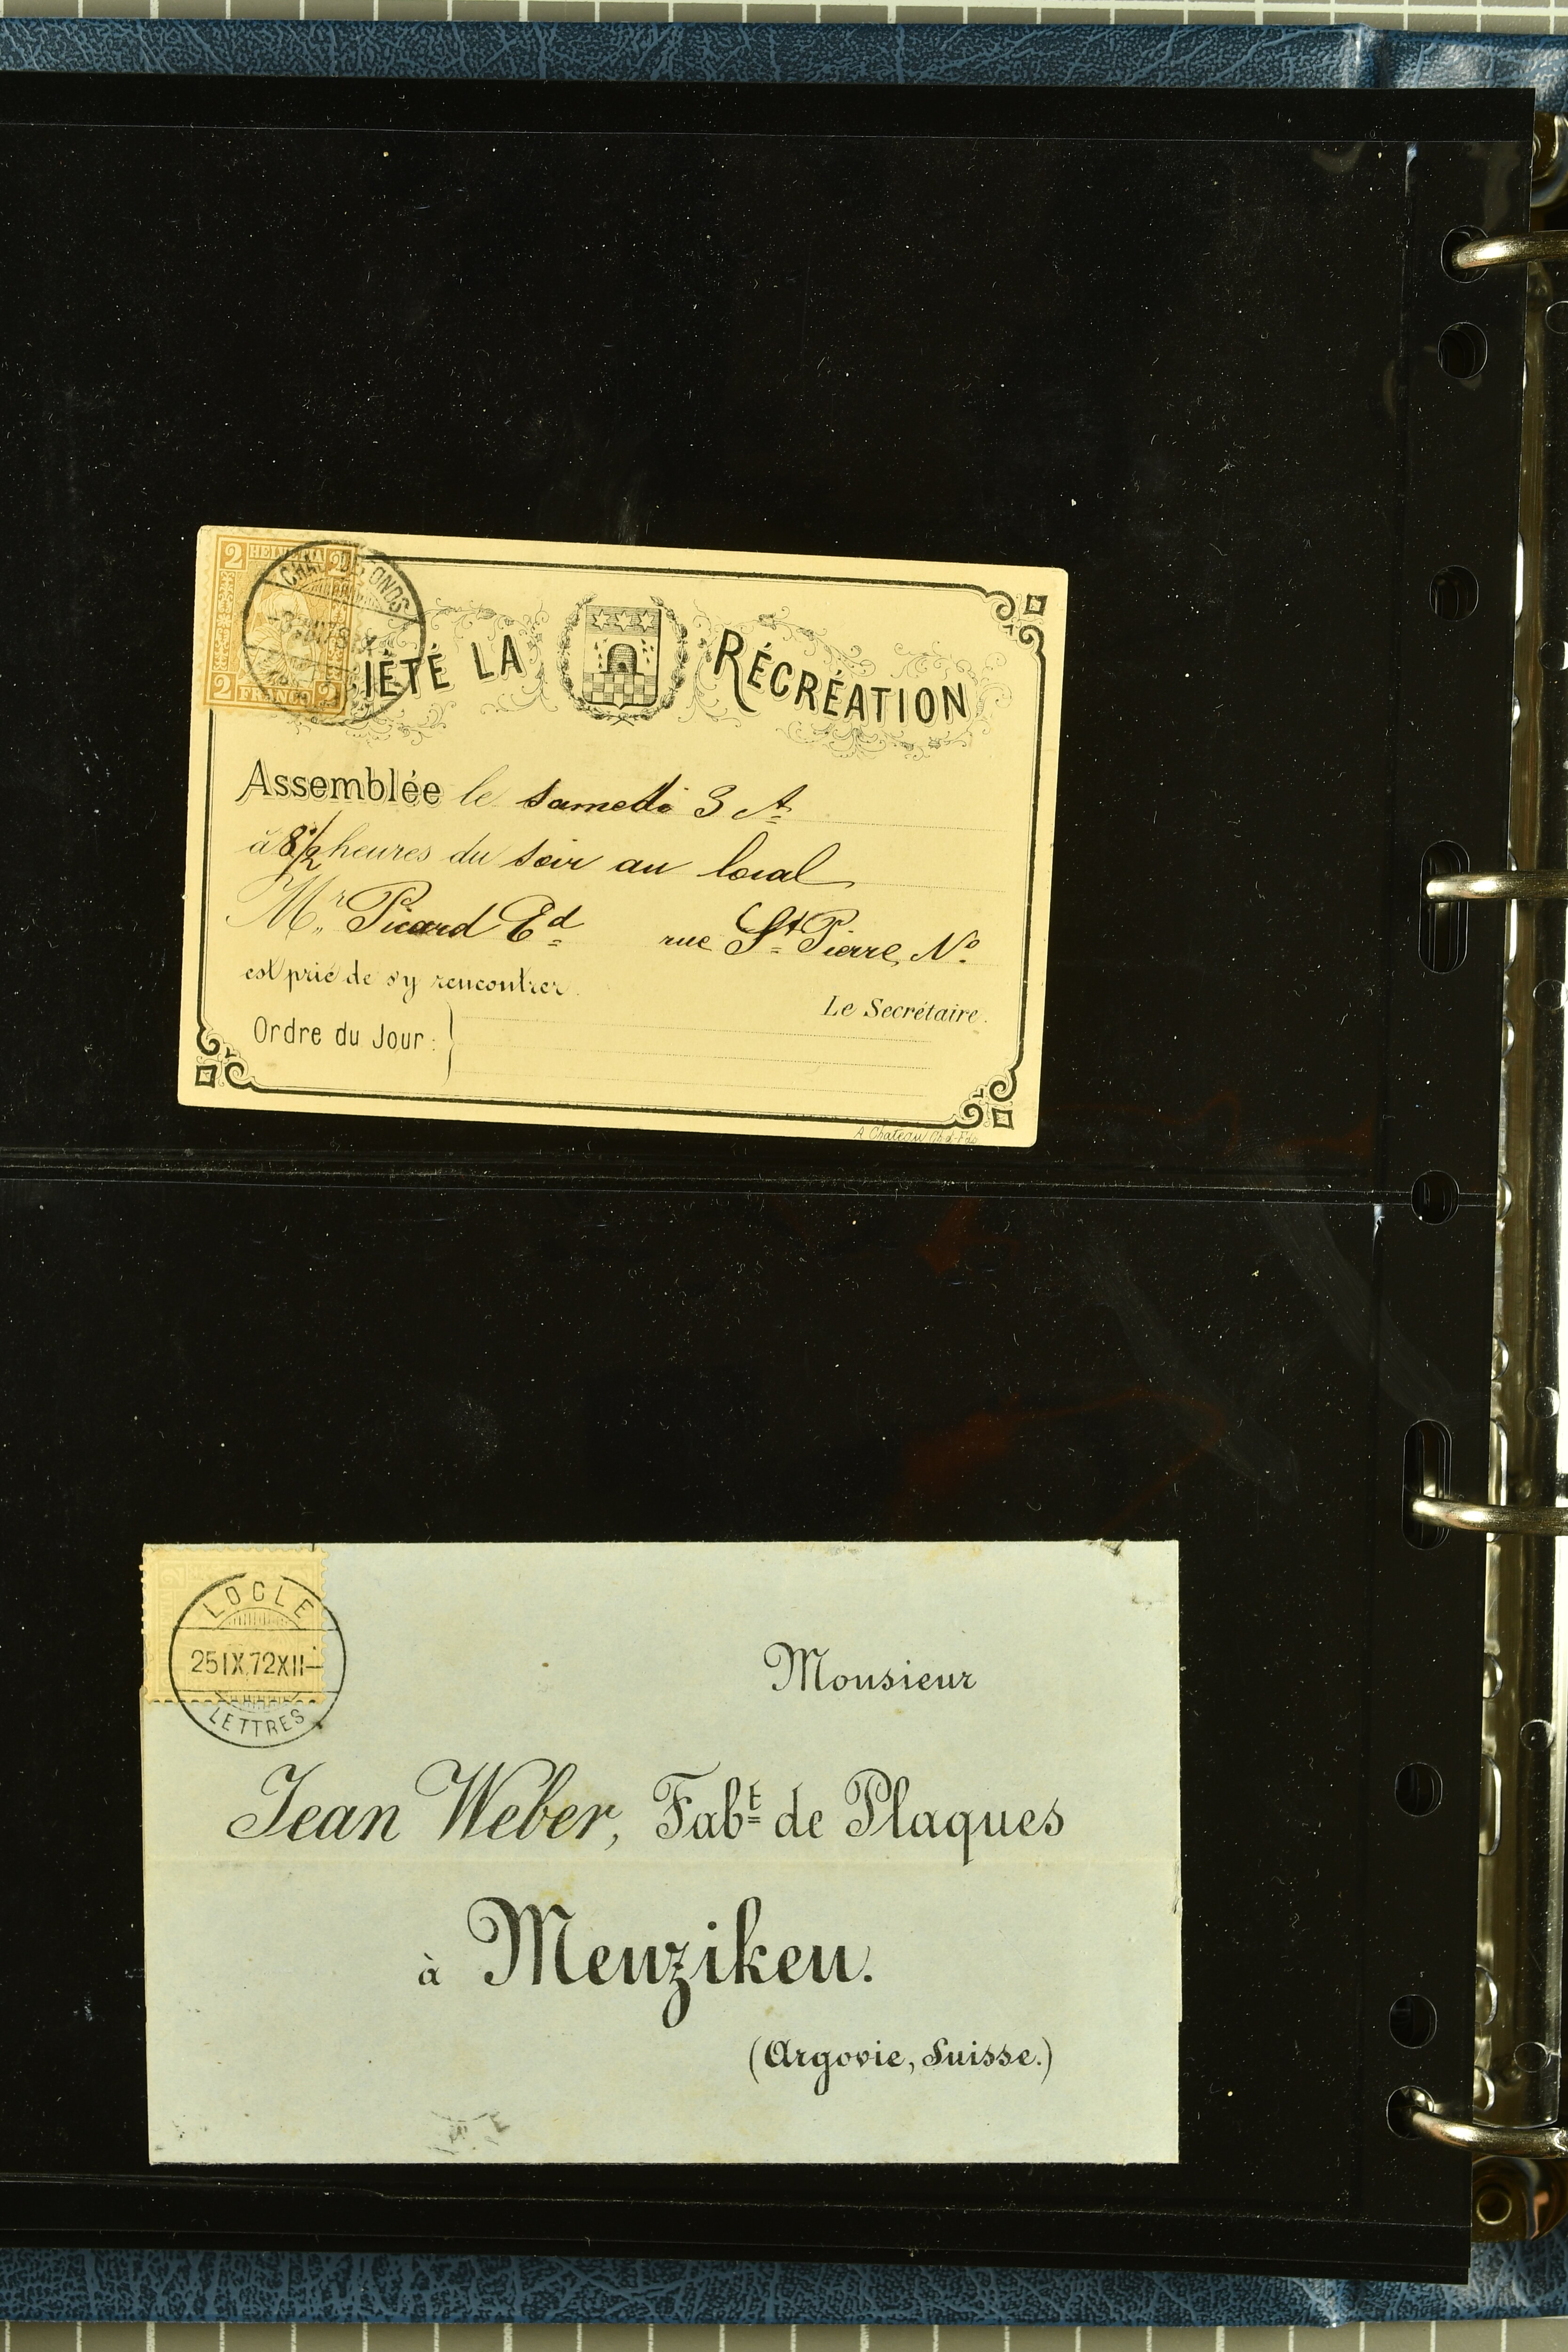 2 HELVETIA 2
2 FRANCO 2
IÉTÉ LA RÉCRÉATION
Assemblée le samedi 3 At
à 8 1/2 heures du soir au local
Mr. Picard Ed rue St Pierre, No.
est prié de s'y rencontrer.
Le Secrétaire.
Ordre du Jour:
A. Chateau Ch-d-Fds
LOCLE
25 IX.72 XII-
LETTRES
Monsieur
Jean Weber, Fabt de Plaques
à Menziken.
(Argovie, Suisse.)